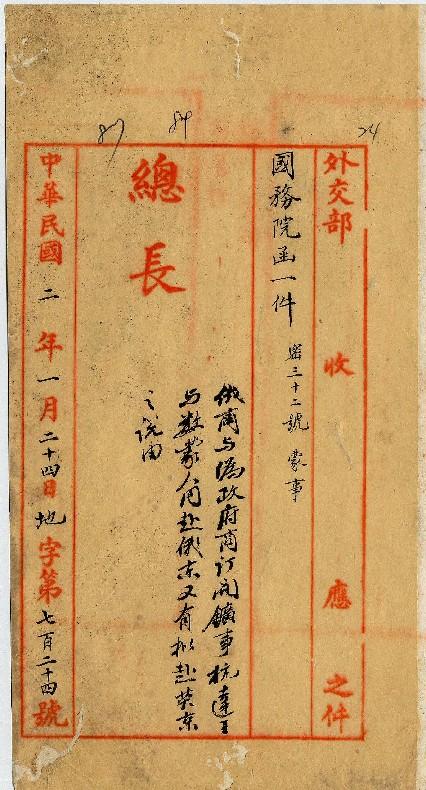 外交部 收 應 之件
國務院函一件 密三十二號 蒙事
總長
俄商与偽政府商订開鑛事杭達王
与数蒙人同赴俄京又有拟赴英京
之说由
中華民國二年一月二十四日地字第七百二十四號
24
84
87